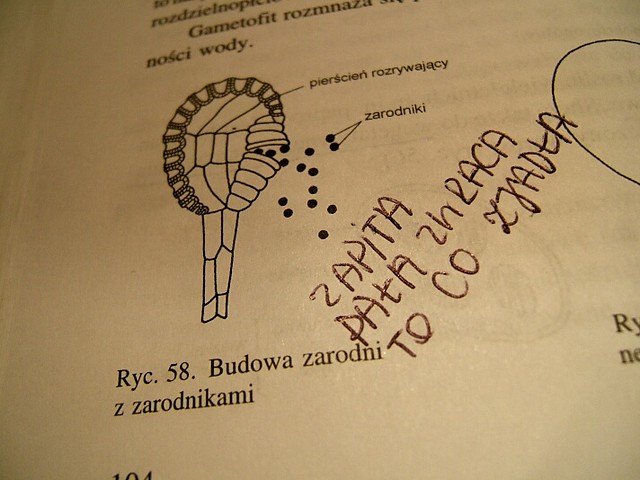 rozdzielnopłcio
Gametofit rozmnaża się
ności wody.
pierścień rozrywający
zarodniki
ZAPITA
PAŁA ZWRACA
TO CO ZJADŁA
Ryc. 58. Budowa zarodni
z zarodnikami
Ry
ne
104